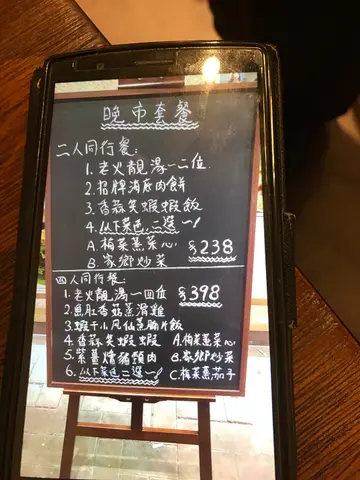 晚市套餐
二人同行餐:
1. 老火靚湯一二位
2. 招牌海底肉餅
3. 香蒜笑蝦蝦飯
4. 以下菜色,二選一!
A. 梅菜蒸菜心
$238
B. 家鄉炒菜
四人同行餐:
1. 老火靚湯一四位
$398
2. 魚肚香菇蒸滑雞
3. 蝦干小鳳仙蒸腩片飯
4. 香蒜笑蝦蝦
A. 梅菜蒸菜心
5. 紫薑㸆豬頸肉
B. 家鄉炒菜
6. 以下菜色二選一!
C. 梅菜蒸茄子